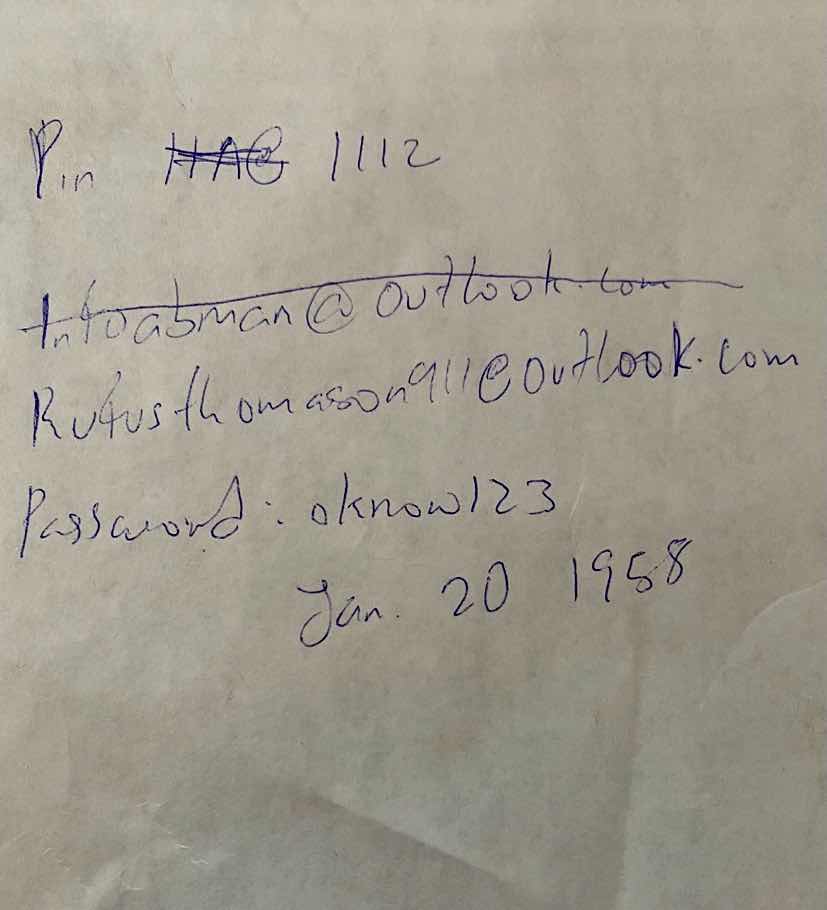 Pin HAC 1112
Infoabman@outlook.com
Rufusthomason911@outlook.com
Password: oknow123
Jan. 20 1958